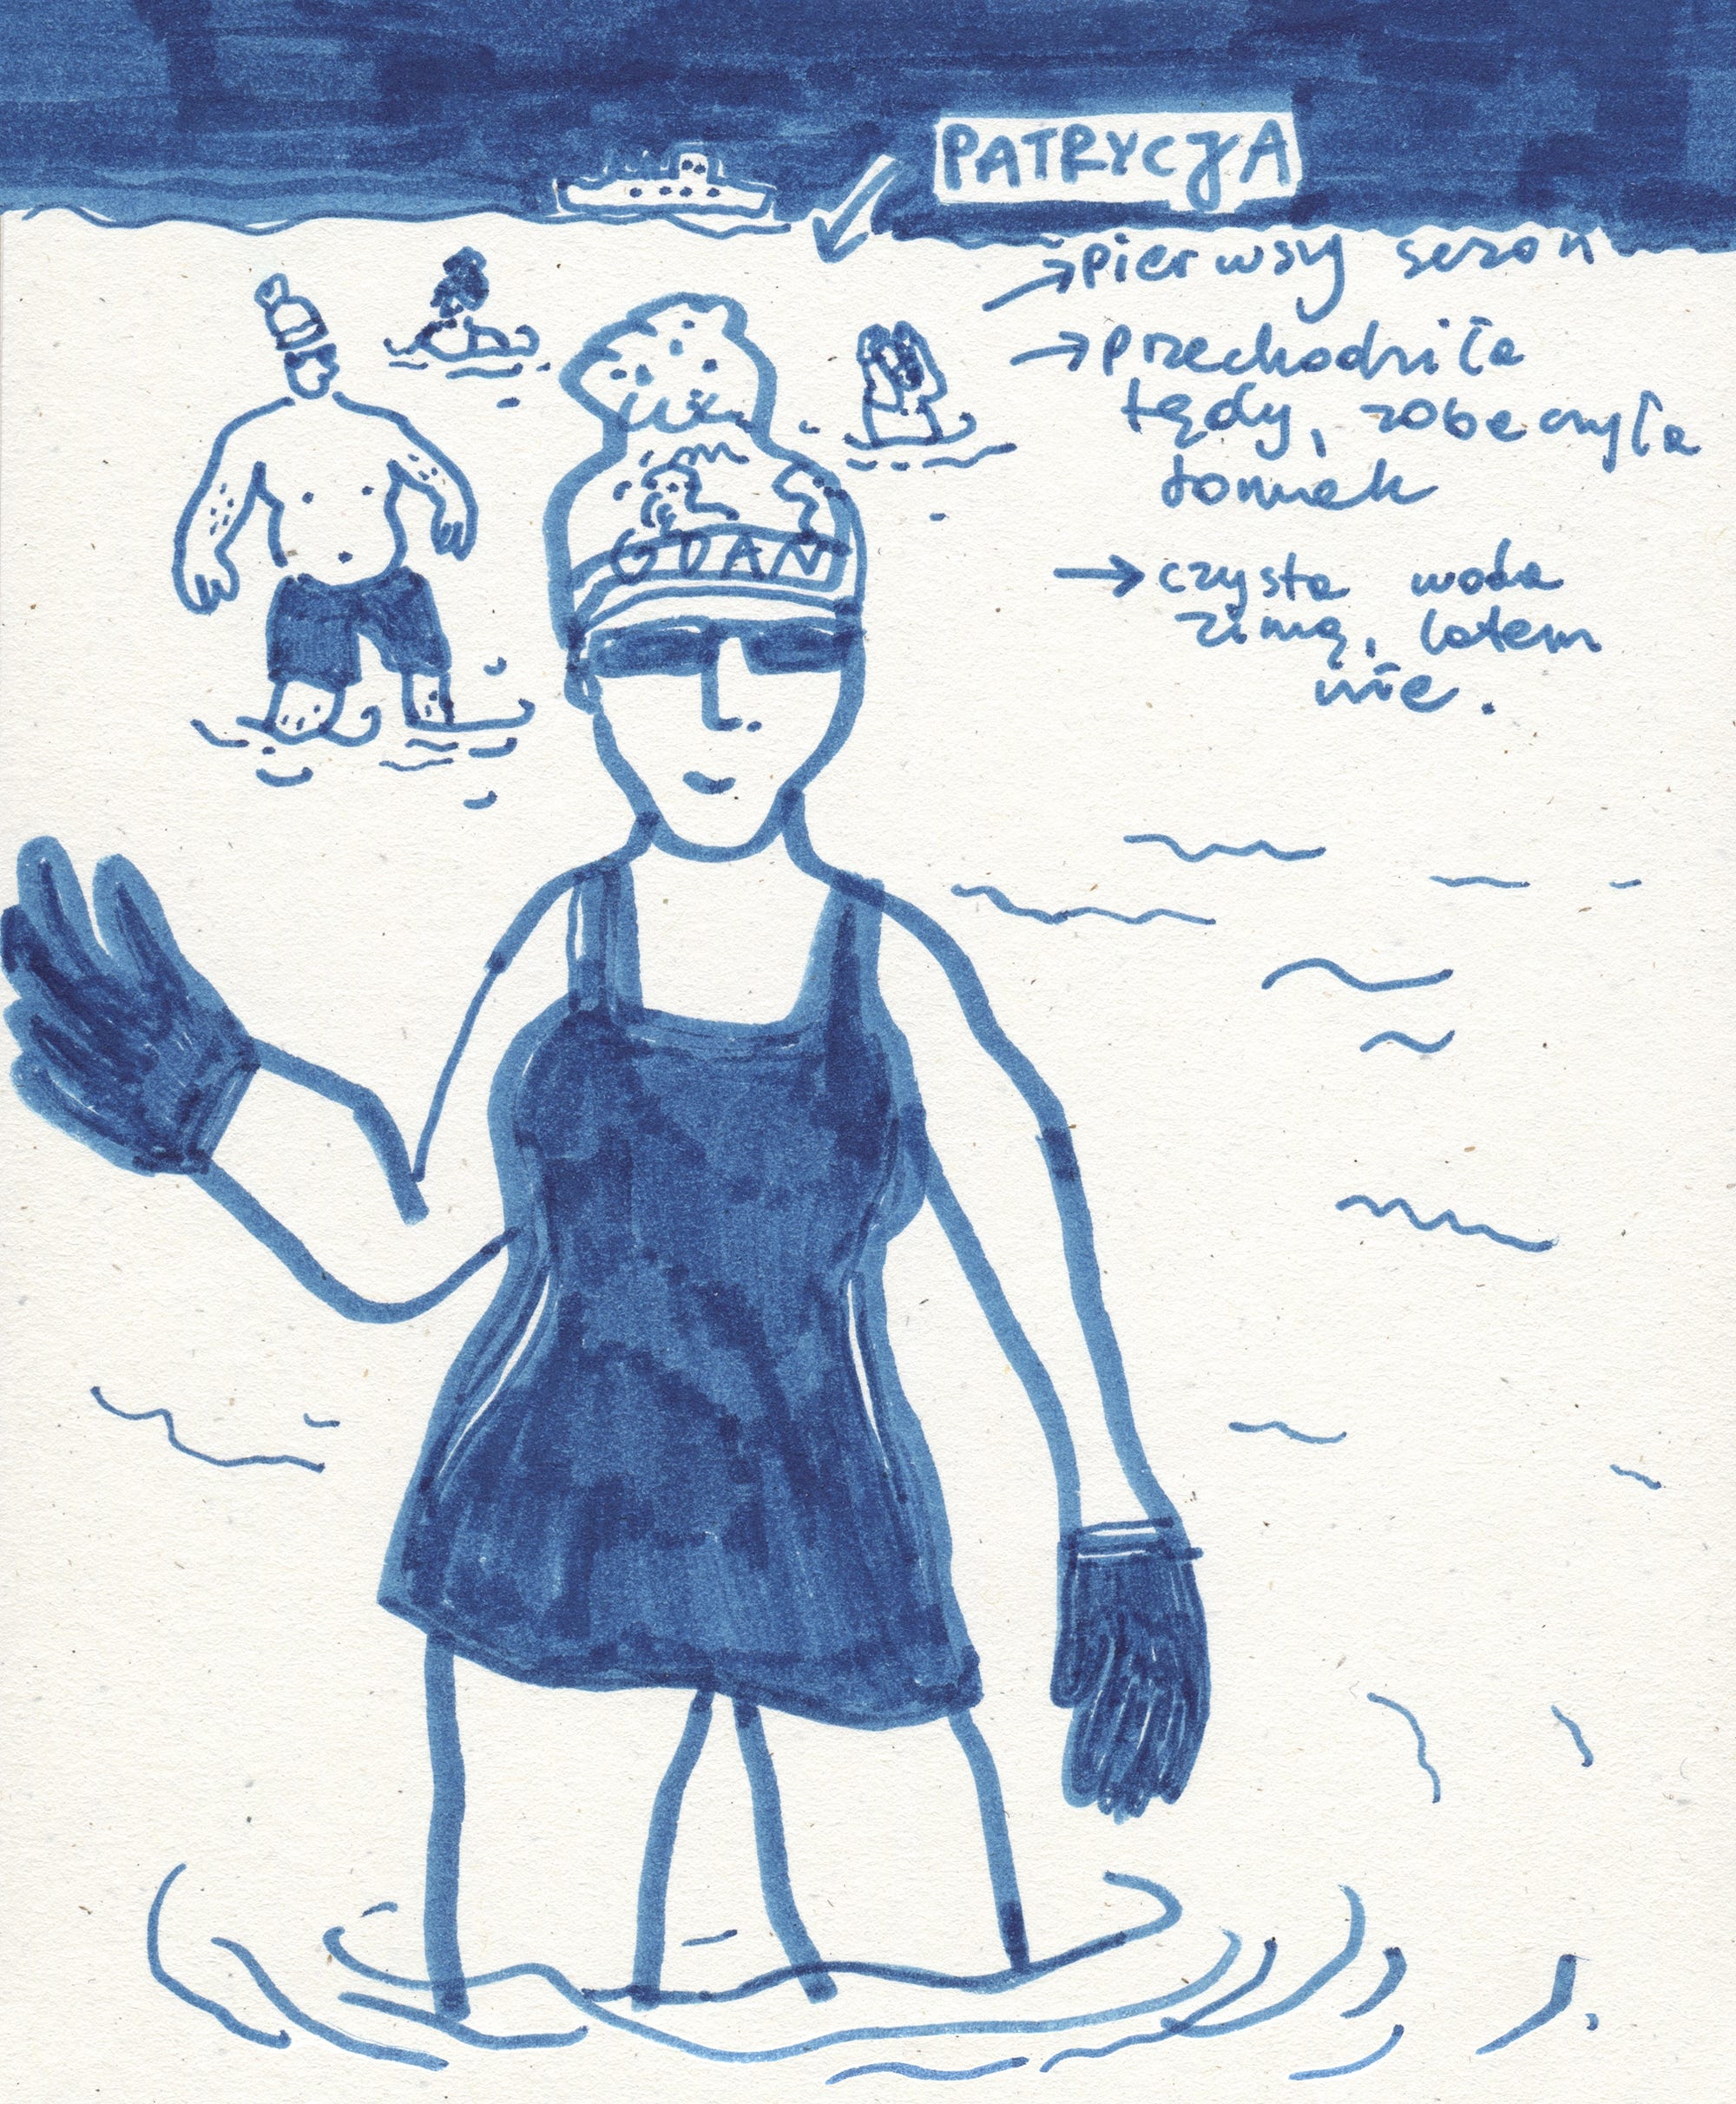 PATRYCJA
→ pierwszy sezon
→ przechodziła
tędy, zobaczyła
domek
→ czysta woda
zimą, latem
nie.
GDAŃ